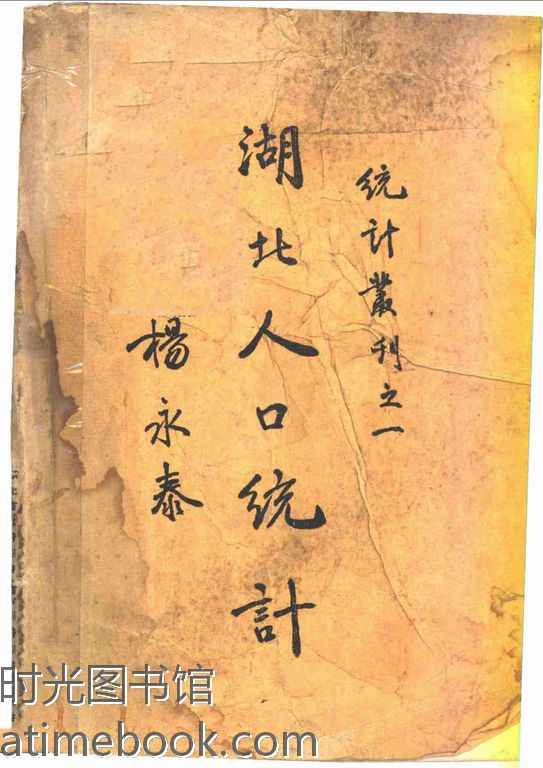 统计叢刊之一
湖北人口統計
楊永泰
时光图书馆
atimebook.com